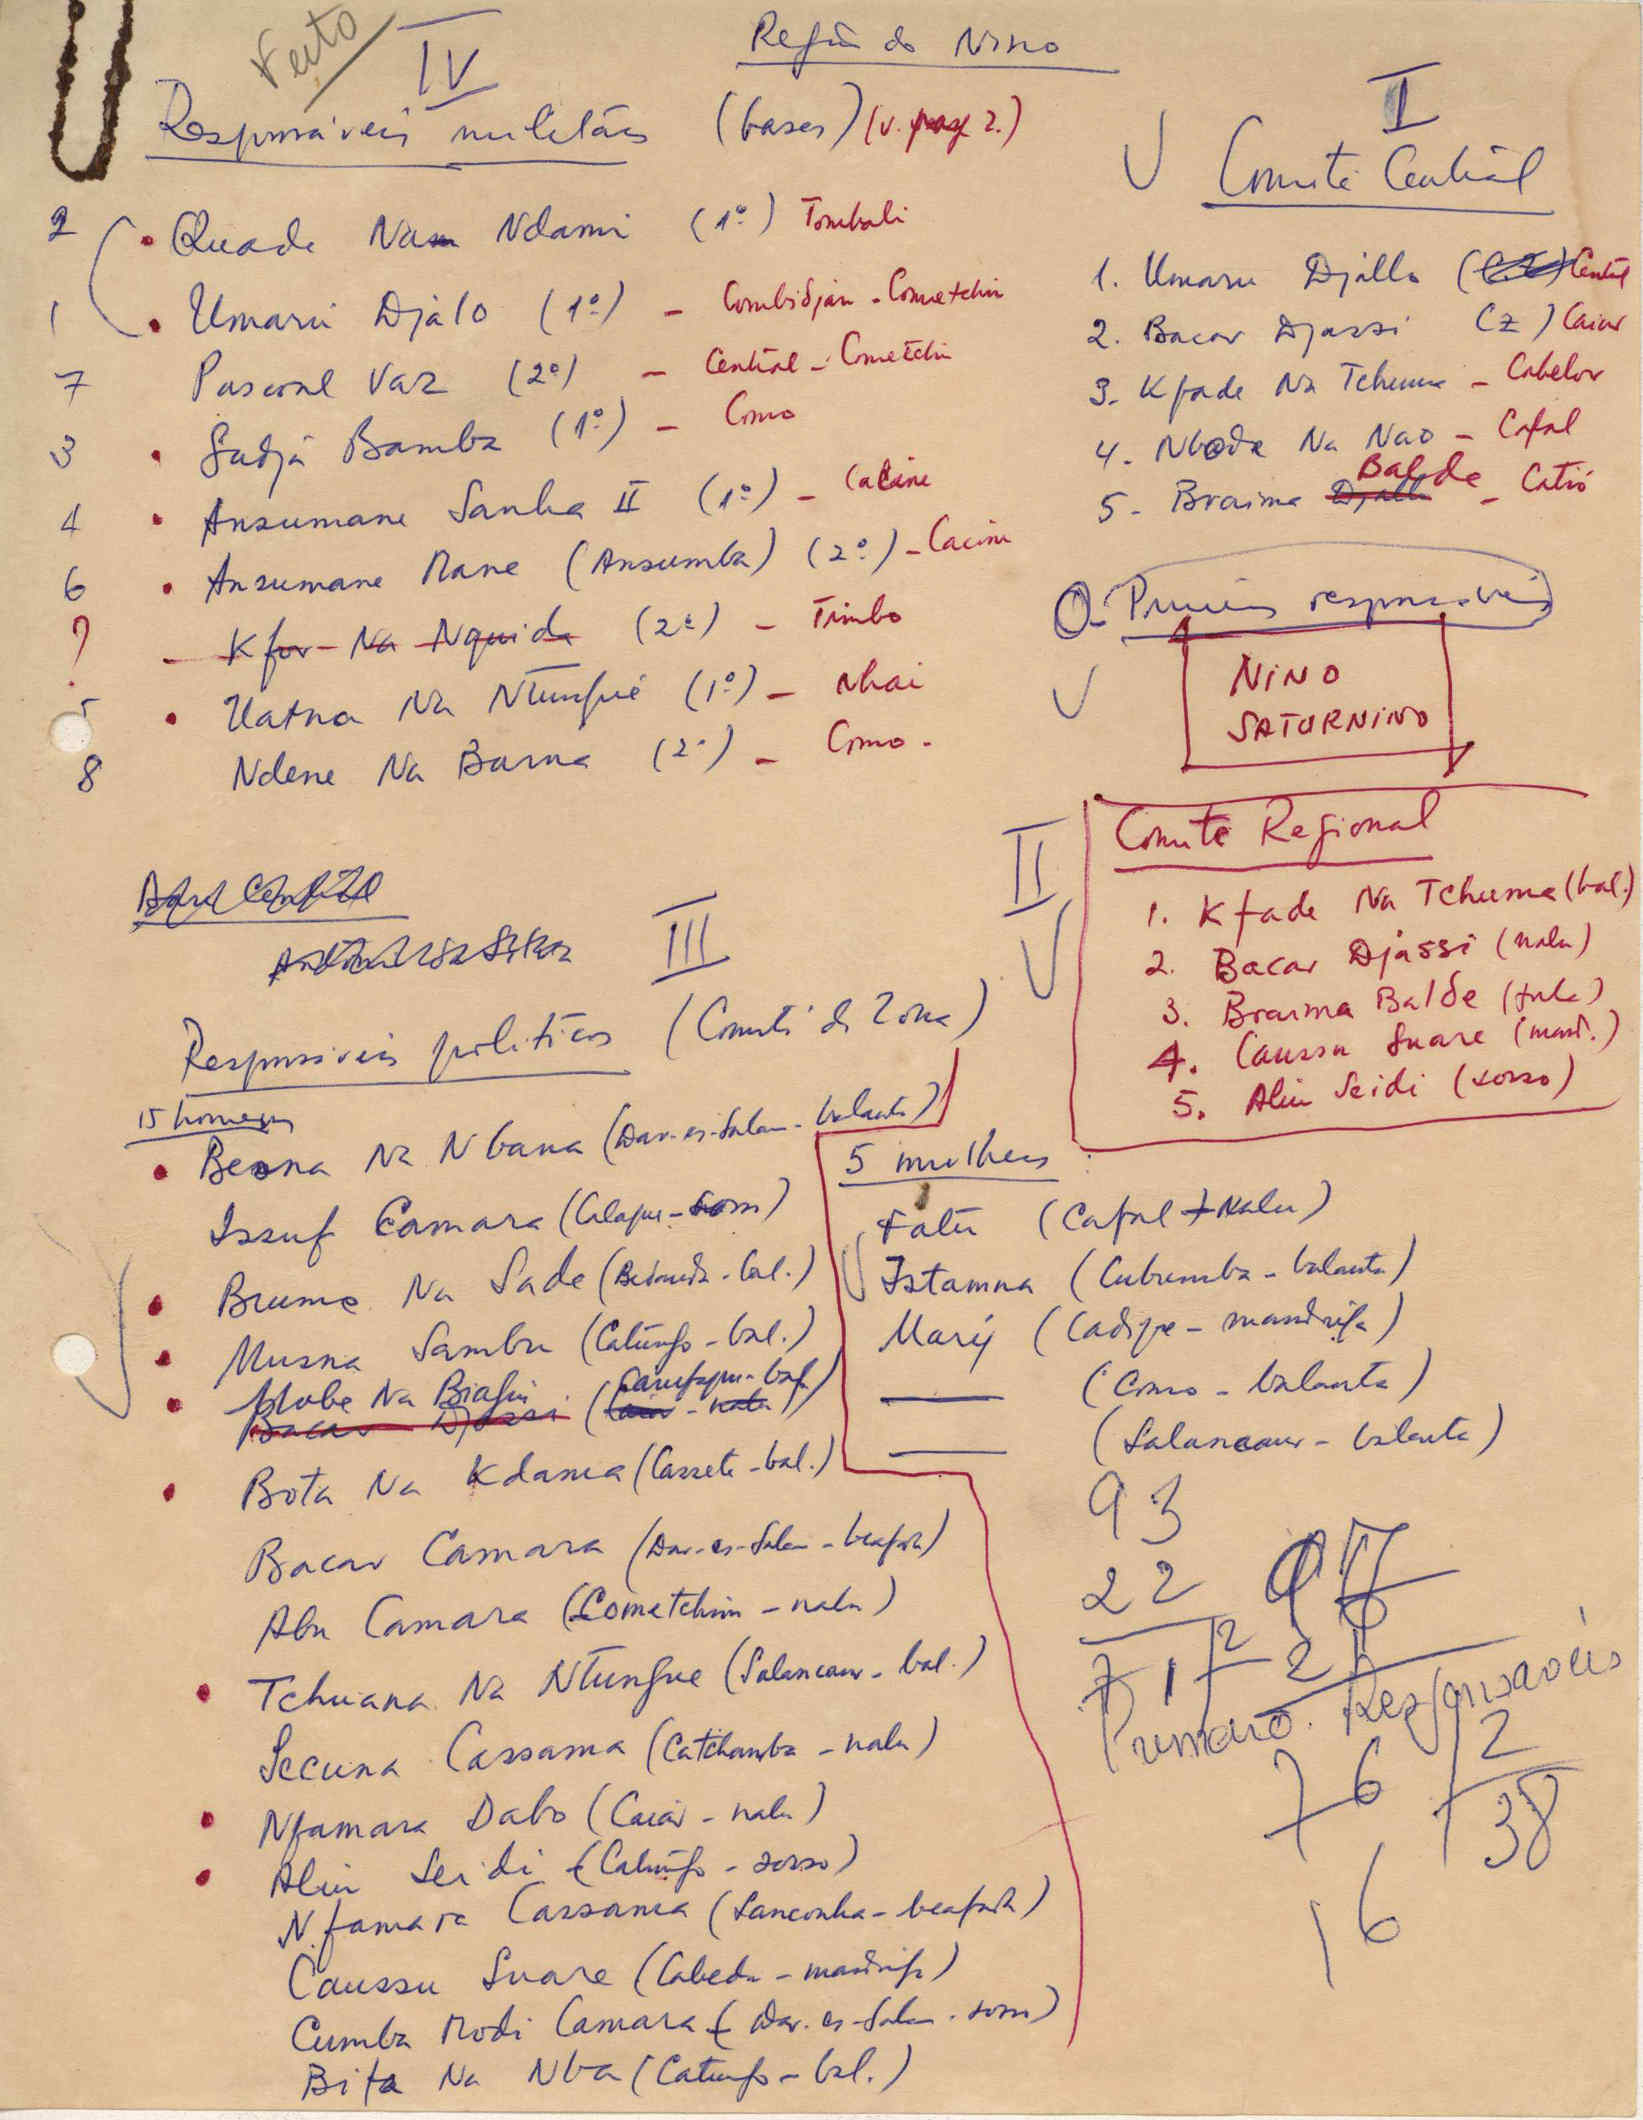 Feito
Região do Nino
IV
Responsáveis militares (bases) (v. pag 2.)
2 • Quade Na Ndami (1º) Tombali
1 • Umaru Djalo (1º) - Combidjan - Cometchin
7 Pascoal Vaz (2º) - Central - Cometchin
3 • Sadjá Bamba (1º) - Como
4 • Ansumane Sanha II (1º) - Cacine
6 • Ansumane Mane (Ansumba) (2º) - Cacine
? - Kfor Na Nquida (2º) - Timbo
5 • Uatna Na Ntungué (1º) - Nhai
8 Ndene Na Barna (2º) - Como.
I
Comité Central
1. Umaru Djallo Central
2. Bacar Djassi (Z) Caiar
3. Kfade Na Tchuma - Cabelor
4. Nbode Na Nao - Cafal
5 - Braima Djallo Balde - Catió
O - Primeiros responsáveis
NINO
SATURNINO
II
Comité Regional
1. Kfade Na Tchuma (bal.)
2. Bacar Djassi (nalu)
3. Braima Balde (fula)
4. Caussu Suare (mand.)
5. Aliu Seidi (sosso)
III
Responsáveis politicos (Comité de Zona)
15 homens
• Beona Na Nbana (Dar-es-Salam - balanta)
Issuf Camara
• Brume Na Sade (Bedanda - bal.)
• Musna Sambu (Catungo - bal.)
• Na Biagui
Bacar Djassi (Caiar - nalu)
• Bota Na Kdama (Cassete - bal.)
Bacar Camara (Dar-es-Salam - beafada)
Abu Camara (Cometchin - nalu)
• Tchuana Na Ntungue (Salancaur - bal.)
Secuna Cassama (Catchamba - nalu)
• Nfamara Dabo (Caiar - nalu)
• Aliu Seidi (Catungo - sosso)
Nfamara Cassama (Sanconha - beafada)
Caussu Suare (Cabedu - mandinga)
Cumba Modi Camara (Dar-es-Salam - sosso)
Bifa Na Nba (Catungo - bal.)
5 mulheres
Fatu (Cafal - Nalu)
Istamna (Cubumba - balanta)
Mary (Cadique - mandinga)
— (Como - balanta)
— (Salancaur - balanta)
93
22
71
2
2
Primeiro. Responsáveis
76 2
38
16